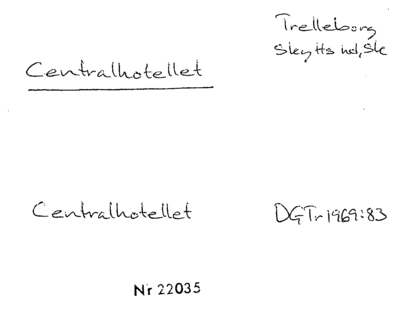 Trelleborg
Skytts hd, Sk
Centralhotellet
Centralhotellet DGTr 1969:83
Nr 22035